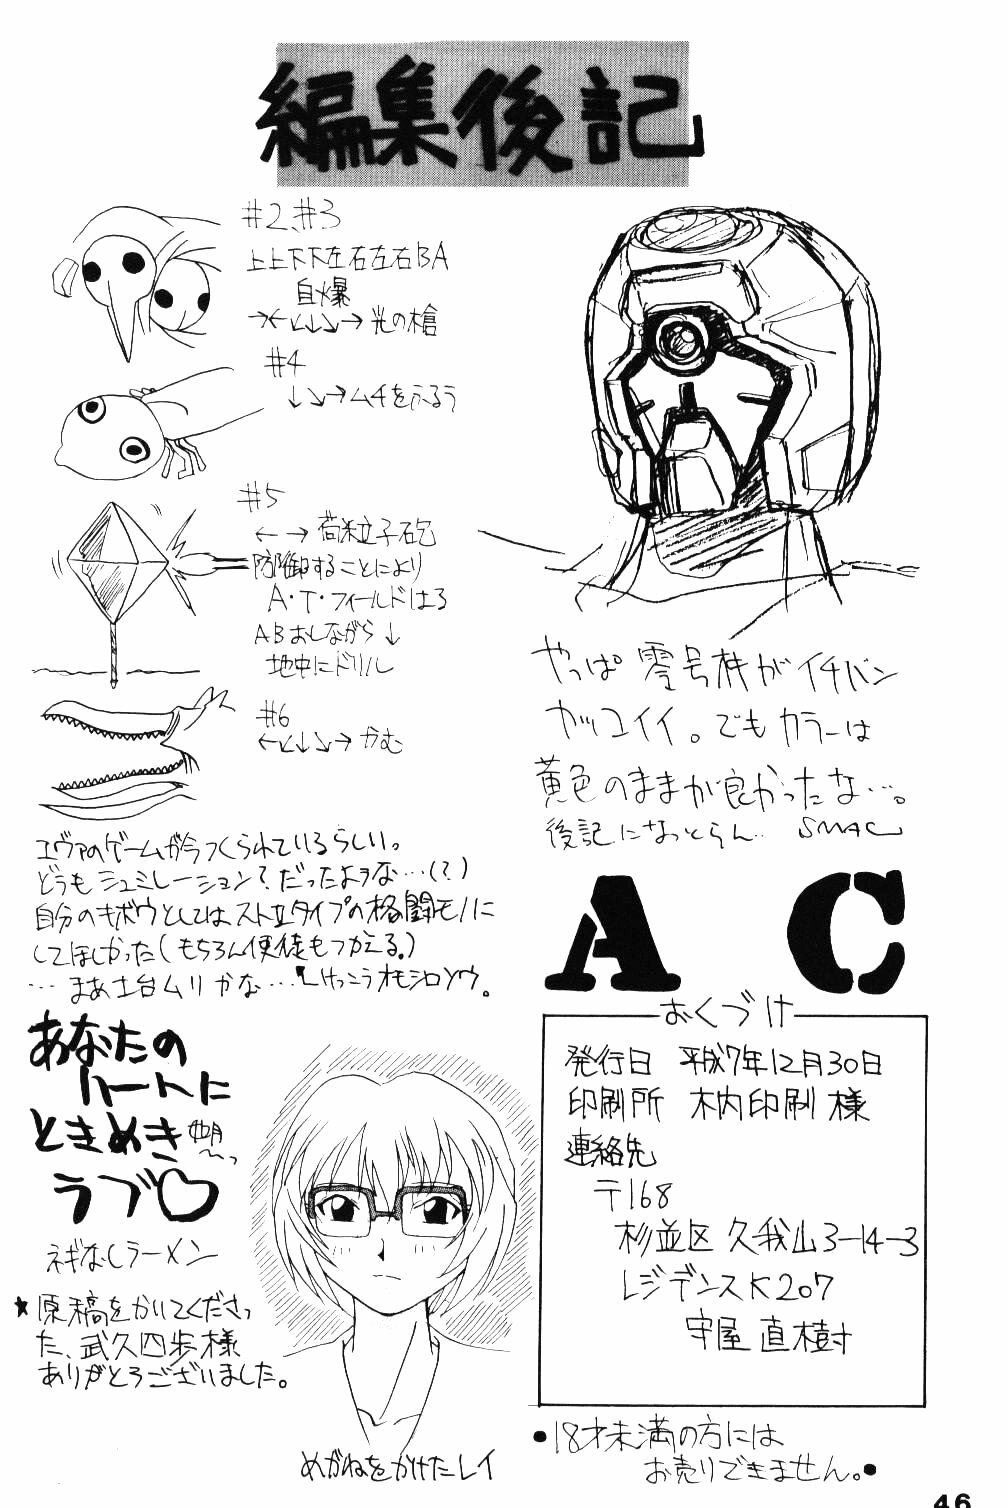 編集後記
#2、#3
上上下下左右左右BA
自爆
→←↙↓↘→ 光の槍
#4
↓↘→ムチをふるう
#5
← → 荷粒子砲
防御することにより
A・T・フィールドはる
ABおしながら↓
地中にドリル
#6
←↙↓↘→ かむ
エヴァのゲームが今つくられているらしい。
どうもシュミレーション?だったよヲな…(?)
自分のキボウとしてはストIIタイプの格闘モノに
してほしかった(もちろん使徒もつかえる。)
…まあ土台ムリかな…けっこうオモシロソウ。
やっぱ零号機がイチバン
カッコイイ。でもカラーは
黄色のままが良かったな…。
後記になっとらん… SMAC
AC
おくづけ
発行日 平成7年12月30日
印刷所 木内印刷 様
連絡先
〒168
杉並区 久我山3-14-3
レジデンスK207
守屋 直樹
●18才未満の方には
お売りできません。●
あなたの
ハートに
ときめき
ラブ♡
ネギなしラーメン
★原稿をかいてくださっ
た、武久四歩様
ありがとうございました。
めがねをかけたレイ
46